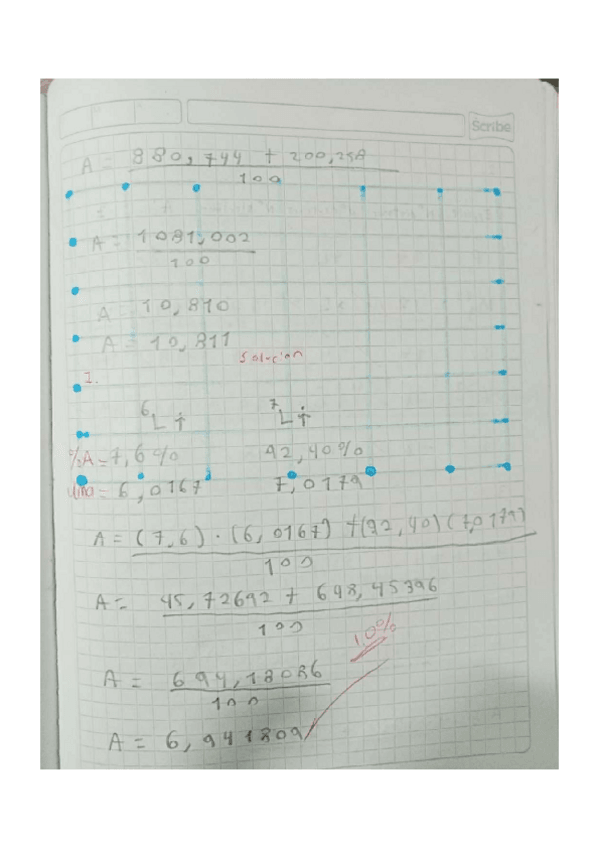 Scribe
A = 880,744 + 200,258
100
A = 1081,002
100
A = 10,810
A = 10,811
Solucion
I.
6Li 7Li
%A = 7,6% 92,40%
uma = 6,0167 7,0179
A = (7,6) · (6,0167) + (92,40) (7,0179)
100
A = 45,72692 + 648,45396
100
10%
A = 694,18086
100
A = 6,941809